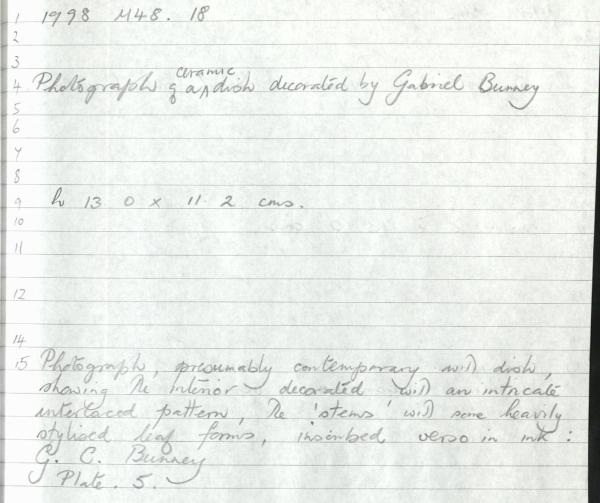 1 1998 M48. 18
2
3
4 Photograph of a ceramic dish decorated by Gabriel Bunney
5
6
7
8
9 h 13 0 x 11. 2 cms.
10
11
12
14
15 Photograph, presumably contemporary with dish,
showing the interior decorated with an intricate
interlaced pattern, the 'stems' with some heavily
stylised leaf forms, inscribed verso in ink :
G. C. Bunney
Plate. 5.